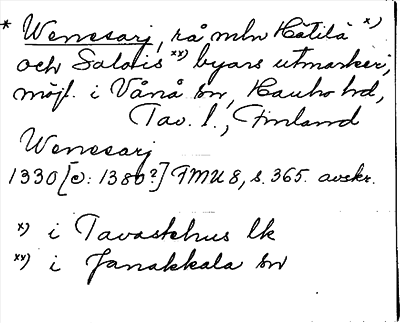 * Wenesarj, rå mln Hätilä x)
och Salois xx) byars utmarker,
möjl. i Vånå sn, Hauho hd,
Tav. l., Finland
Wenesarj
1330 [ɔ: 1380?] FMU 8, s. 365. avskr.
x) i Tavastehus lk
xx) i Janakkala sn